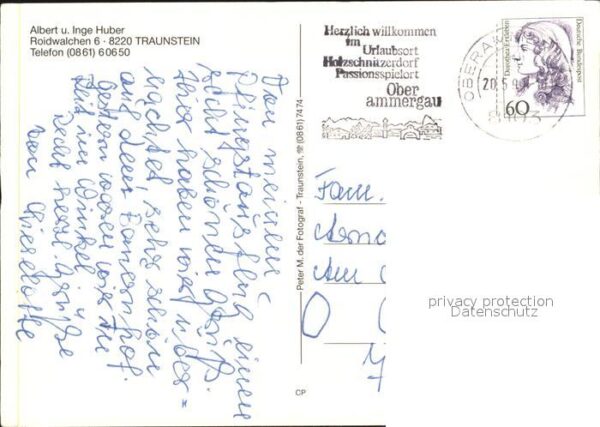 Albert u. Inge Huber
Roidwalchen 6 - 8220 TRAUNSTEIN
Telefon (0861) 60650
Von meinem
Pfingstausflug einen
recht schönen Gruß.
Hier haben wir über-
nachtet, sehr schön
auf dem Bauernhof.
Gestern waren wir in
Reit im Winkel.
Recht herzl. Grüße
von Lieselotte
Peter M. der Fotograf - Traunstein, ☏ (0861) 7474
CP
Herzlich willkommen
im
Urlaubsort
Holzschnitzerdorf
Passionsspielort
Ober
ammergau
20.5.
Dorothea Erxleben
Deutsche Bundespost
60
Fam.
Am
privacy protection
Datenschutz